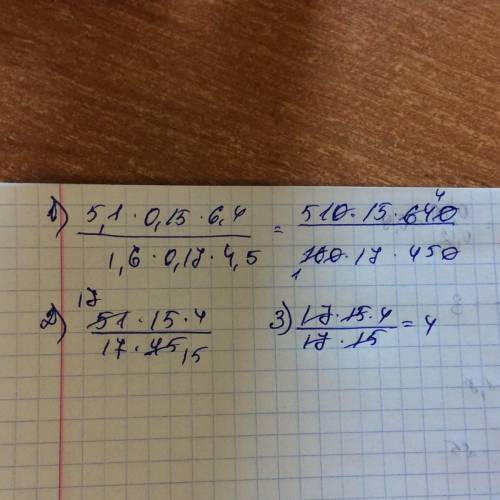 1) 5,1 · 0,15 · 6,4 / 1,6 · 0,17 · 4,5 = 510 · 15 · 640 4 / 160 1 · 17 · 450
2) 51 17 · 15 · 4 / 17 · 45 15
3) 17 · 15 · 4 / 17 · 15 = 4